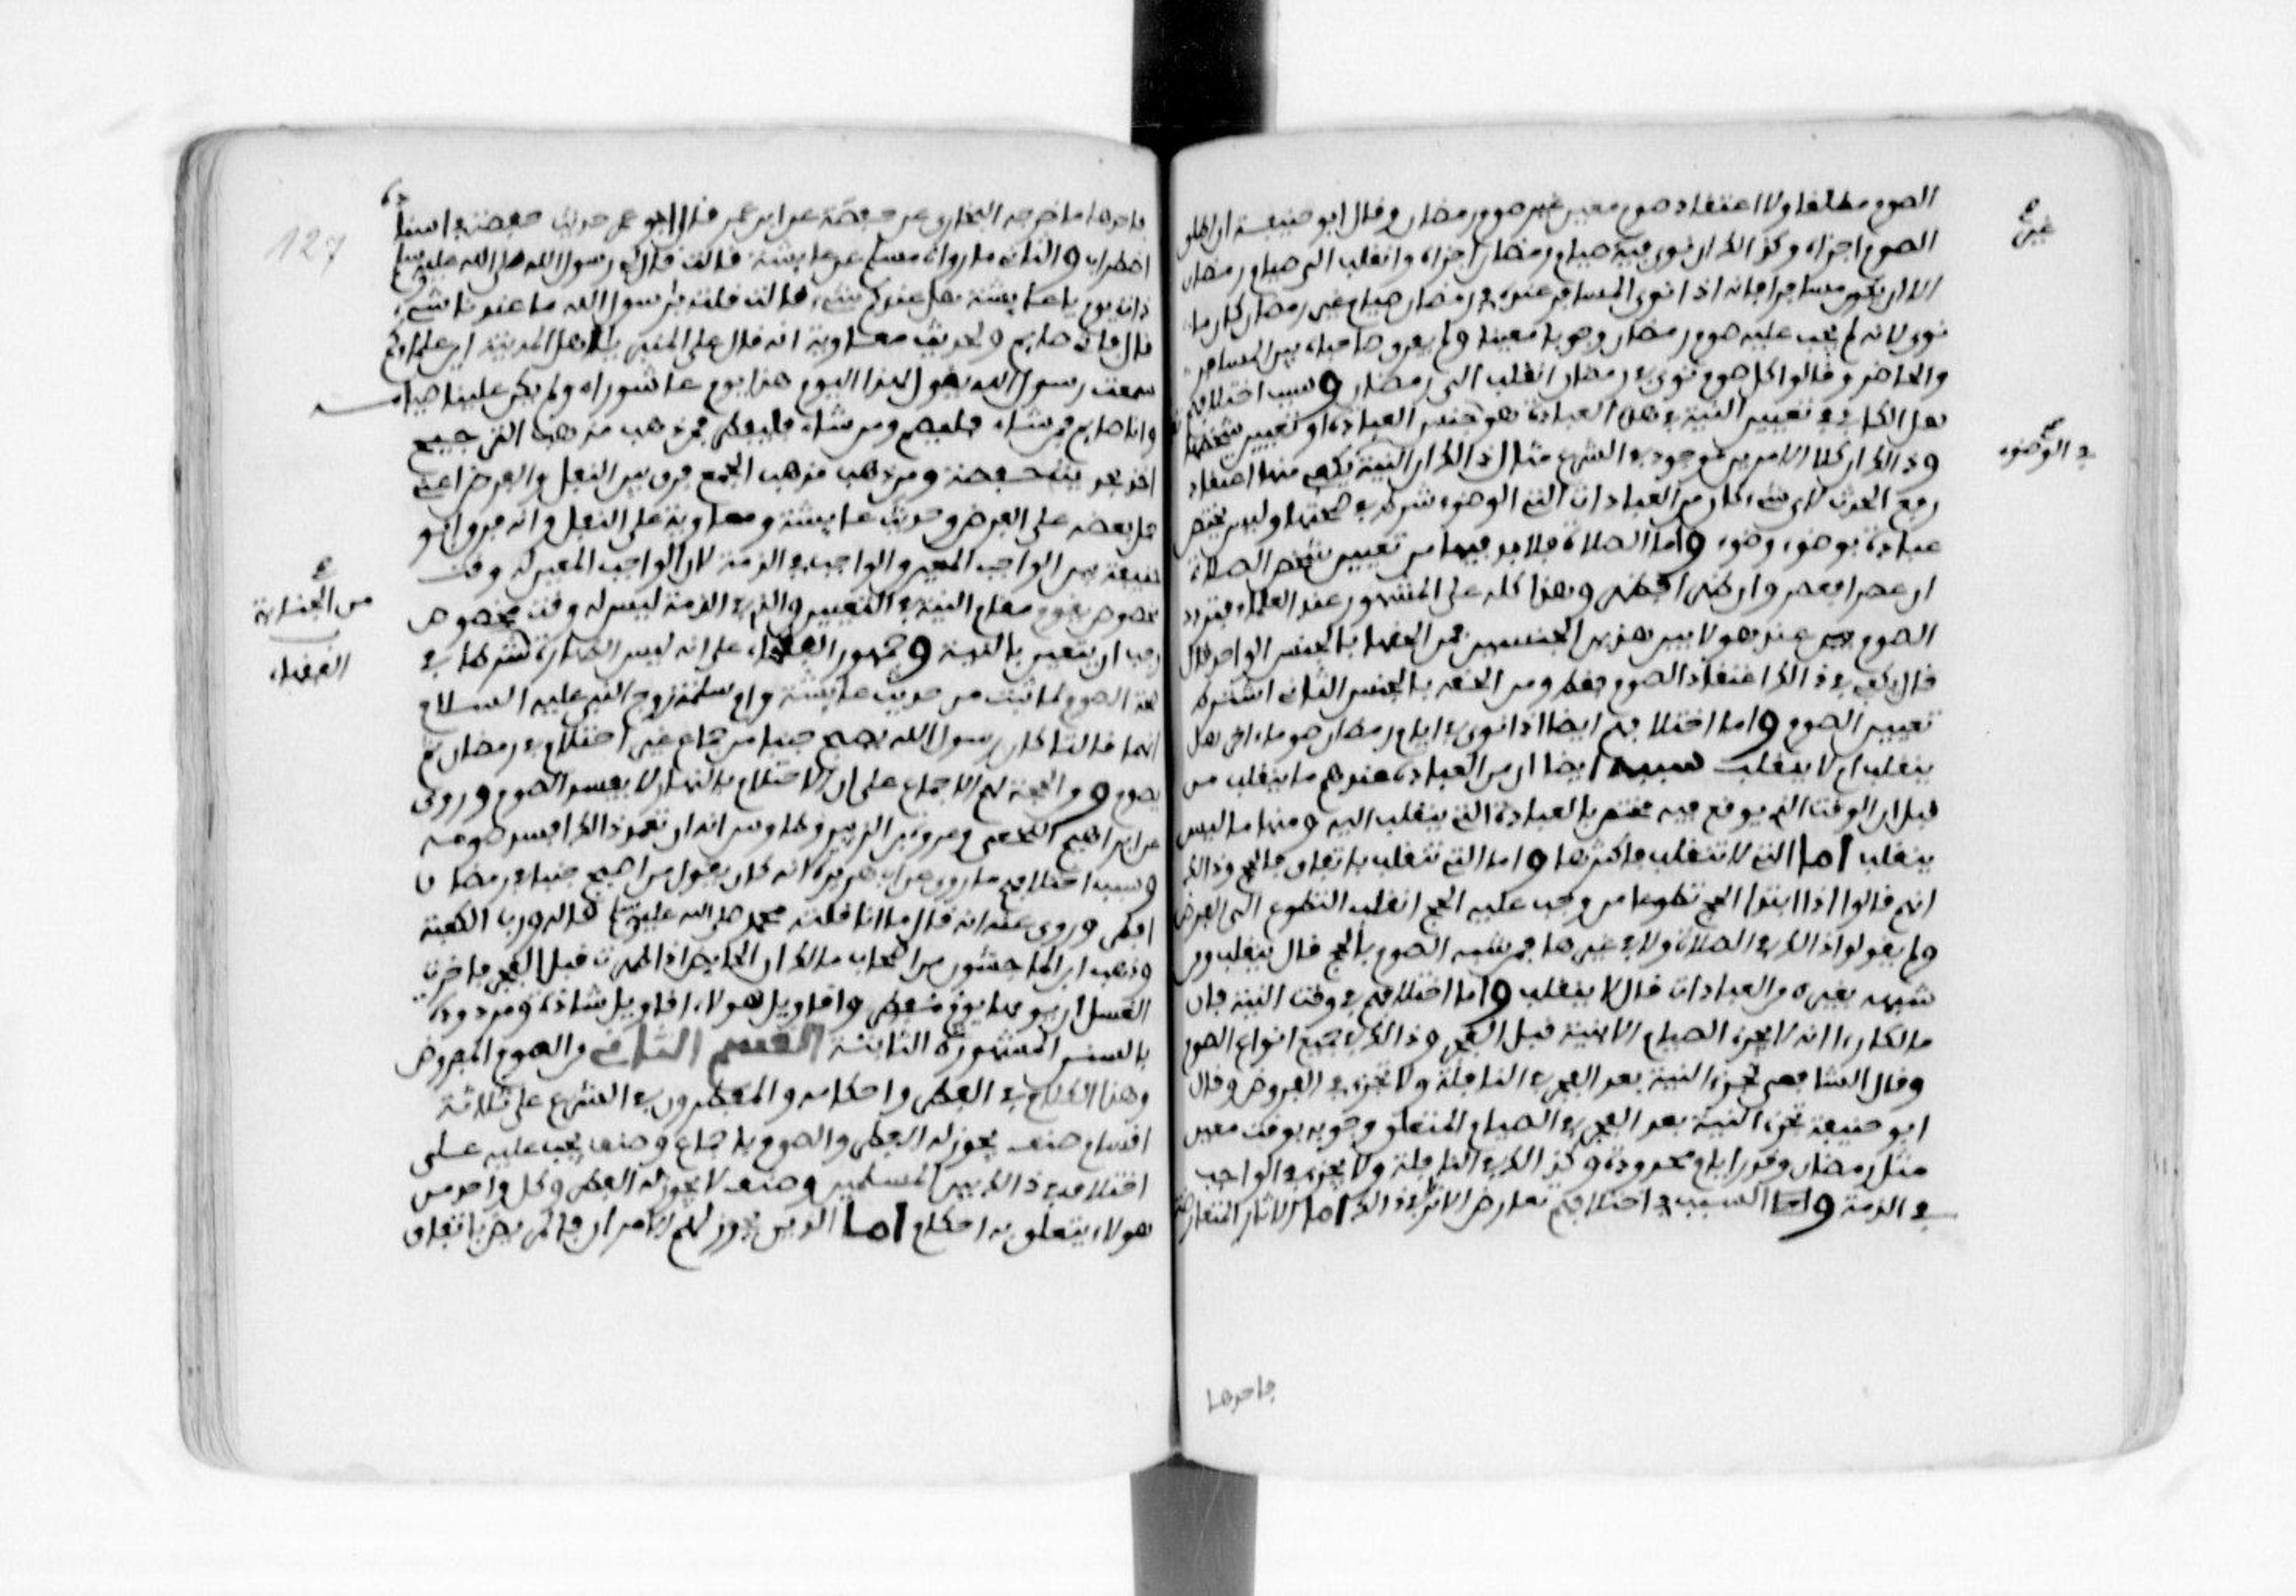 الصوم مطلقا ولا اعتقاد صوم معين غير صوم رمضان وقال ابو حنيفة ان اطلق
الصوم اجزاه وكذالك ان نوى فيه صيام رمضان اجزاه وانقلب الى صيام رمضان
الا ان يكون مسافرا فانه اذا نوى المسافر عنده في رمضان صيام غير رمضان كان ما
نوى لانه لم يجب عليه صوم رمضان وجوبا معينا ولم يفرق صاحباه بين المسافر
والحاضر وقالوا كل صوم نوى في رمضان انقلب الى رمضان وسبب اختلافهم
هل الكافي في تعيين النية في هذه العبادة هو جنس العبادة او تعيين شخصها
وذالك ان كلا الامرين موجود في الشرع مثال ذالك ان النية يكفي منها اعتقاد
رفع الحدث لاي شيء كان من العبادات التي الوضوء شرط في صحتها وليس يختص
عبادة بوضوء وضوء واما الصلاة فلا بد فيها من تعيين شخص الصلاة
ان عصرا فعصر وان ظهرا فظهر وهذا كله على المشهور عند العلماء فتردد
الصوم عند هولا بين هذين الجنسين فمن الحقه بالجنس الواحد قال
قال يكفي في ذالك اعتقاد الصوم فقط ومن الحقه بالجنس الثاني اشترط
تعيين الصوم واما اختلافهم ايضا اذا نوى في ايام رمضان صوما اخر هل
ينقلب ام لا ينقلب سببه ايضا ان من العبادة عندهم ما ينقلب من
قبل ان الوقت الذي يوقع فيه مختص بالعبادة التي ينقلب اليه ومنها ما ليس
ينقلب اما التي لا تنقلب فاكثرها واما التي تنقلب باتفاق فالحج وذالك
انهم قالوا اذا ابتدا الحج تطوعا من وجب عليه الحج انقلب التطوع الى الفرض
ولم يقولوا ذالك في الصلاة ولا في غيرها فمن شبه الصوم بالحج قال ينقلب ومن
شبهه بغيره من العبادات قال لا ينقلب واما اختلافهم في وقت النية فان
مالكا راا انه لا يجزء الصيام الا بنية قبل الفجر وذالك في جميع انواع الصوم
وقال الشافعي تجزء النية بعد الفجر في النافلة ولا تجزء في الفروض وقال
ابو حنيفة تجزء النية بعد الفجر في الصيام المتعلق وجوبه بوقت معين
مثل رمضان ونذر ايام محدودة وكذالك في النافلة ولا يجزء في الواجب
في الذمة واما السبب في اختلافهم تعارض الاثار في ذالك اما الاثار المتعارضة
غير
في الوضوء
فاحدها
127
فاحدها ما خرجه البخاري عن حفصة عن ابن عمر قال ابو عمر حديث حفصة في اسناده
اضطراب والثاني ما رواه مسلم عن عايشة قالت قال لي رسول الله صلى الله عليه وسلم
ذات يوم يا عايشة هل عندكم شيء قالت قلت يرسول الله ما عندنا شيء
قال فاني صايم ولحديث معاوية انه قال على المنبر يا اهل المدينة اين علماوكم
سمعت رسول الله يقول لهذا اليوم هذا يوم عاشوراء ولم يكتب علينا صيامه
وانا صايم فمن شاء فليصم ومن شاء فليفطر فمن ذهب مذهب الترجيح
اخذ بحديث حفصة ومن ذهب مذهب الجمع فرق بين النفل والفرض اعني
حمل بعضه على الفرض وحديث عايشة ومعاوية على النفل وانه فرق ابو
حنيفة بين الواجب المعين والواجب في الذمة لان الواجب المعين له وقت
مخصوص يقوم مقام النية في التعيين والذي في الذمة ليس له وقت مخصوص
وجب ان يتعين بالنية وجمهور الفقهاء على انه ليس الطهارة شرطا في
صحة الصوم لما ثبت من حديث عايشة وام سلمة زوج النبي عليه السلام
انهما قالتا كان رسول الله يصبح جنبا من جماع غير احتلام في رمضان ثم
يصوم ومن الحجة لهم الاجماع على ان الاحتلام بالنهار لا يفسد الصوم وروى
عن ابراهيم النخعي وعروة بن الزبير وطاوس انه ان تعمد ذالك افسد صومه
وسبب اختلافهم ما روي عن ابي هريرة انه كان يقول من اصبح جنبا في رمضان
افطر وروي عنه انه قال ما انا قلته محمد صلى الله عليه وسلم قاله ورب الكعبة
وذهب ابن الماجشون من اصحاب مالك ان الحايض اذا طهرت قبل الفجر فاخرت
الغسل ان يومها يوم فطر واقاويل هولاء اقاويل شاذة ومردودة
بالسنن المشهورة الثابتة القسم الثاني من الصوم المفروض
وهذا الكلام في الفطر واحكامه والمفطرون في الشرع على ثلاثة
اقسام صنف يجوز له الفطر والصوم باجماع وصنف يجب عليه على
اختلاف في ذالك بين المسلمين وصنف لا يجوز له الفطر وكل واحد من
هولاء يتعلق به احكام اما الذين يجوز لهم الامران فالمريض باتفاق
من الجنابة
الفقهاء